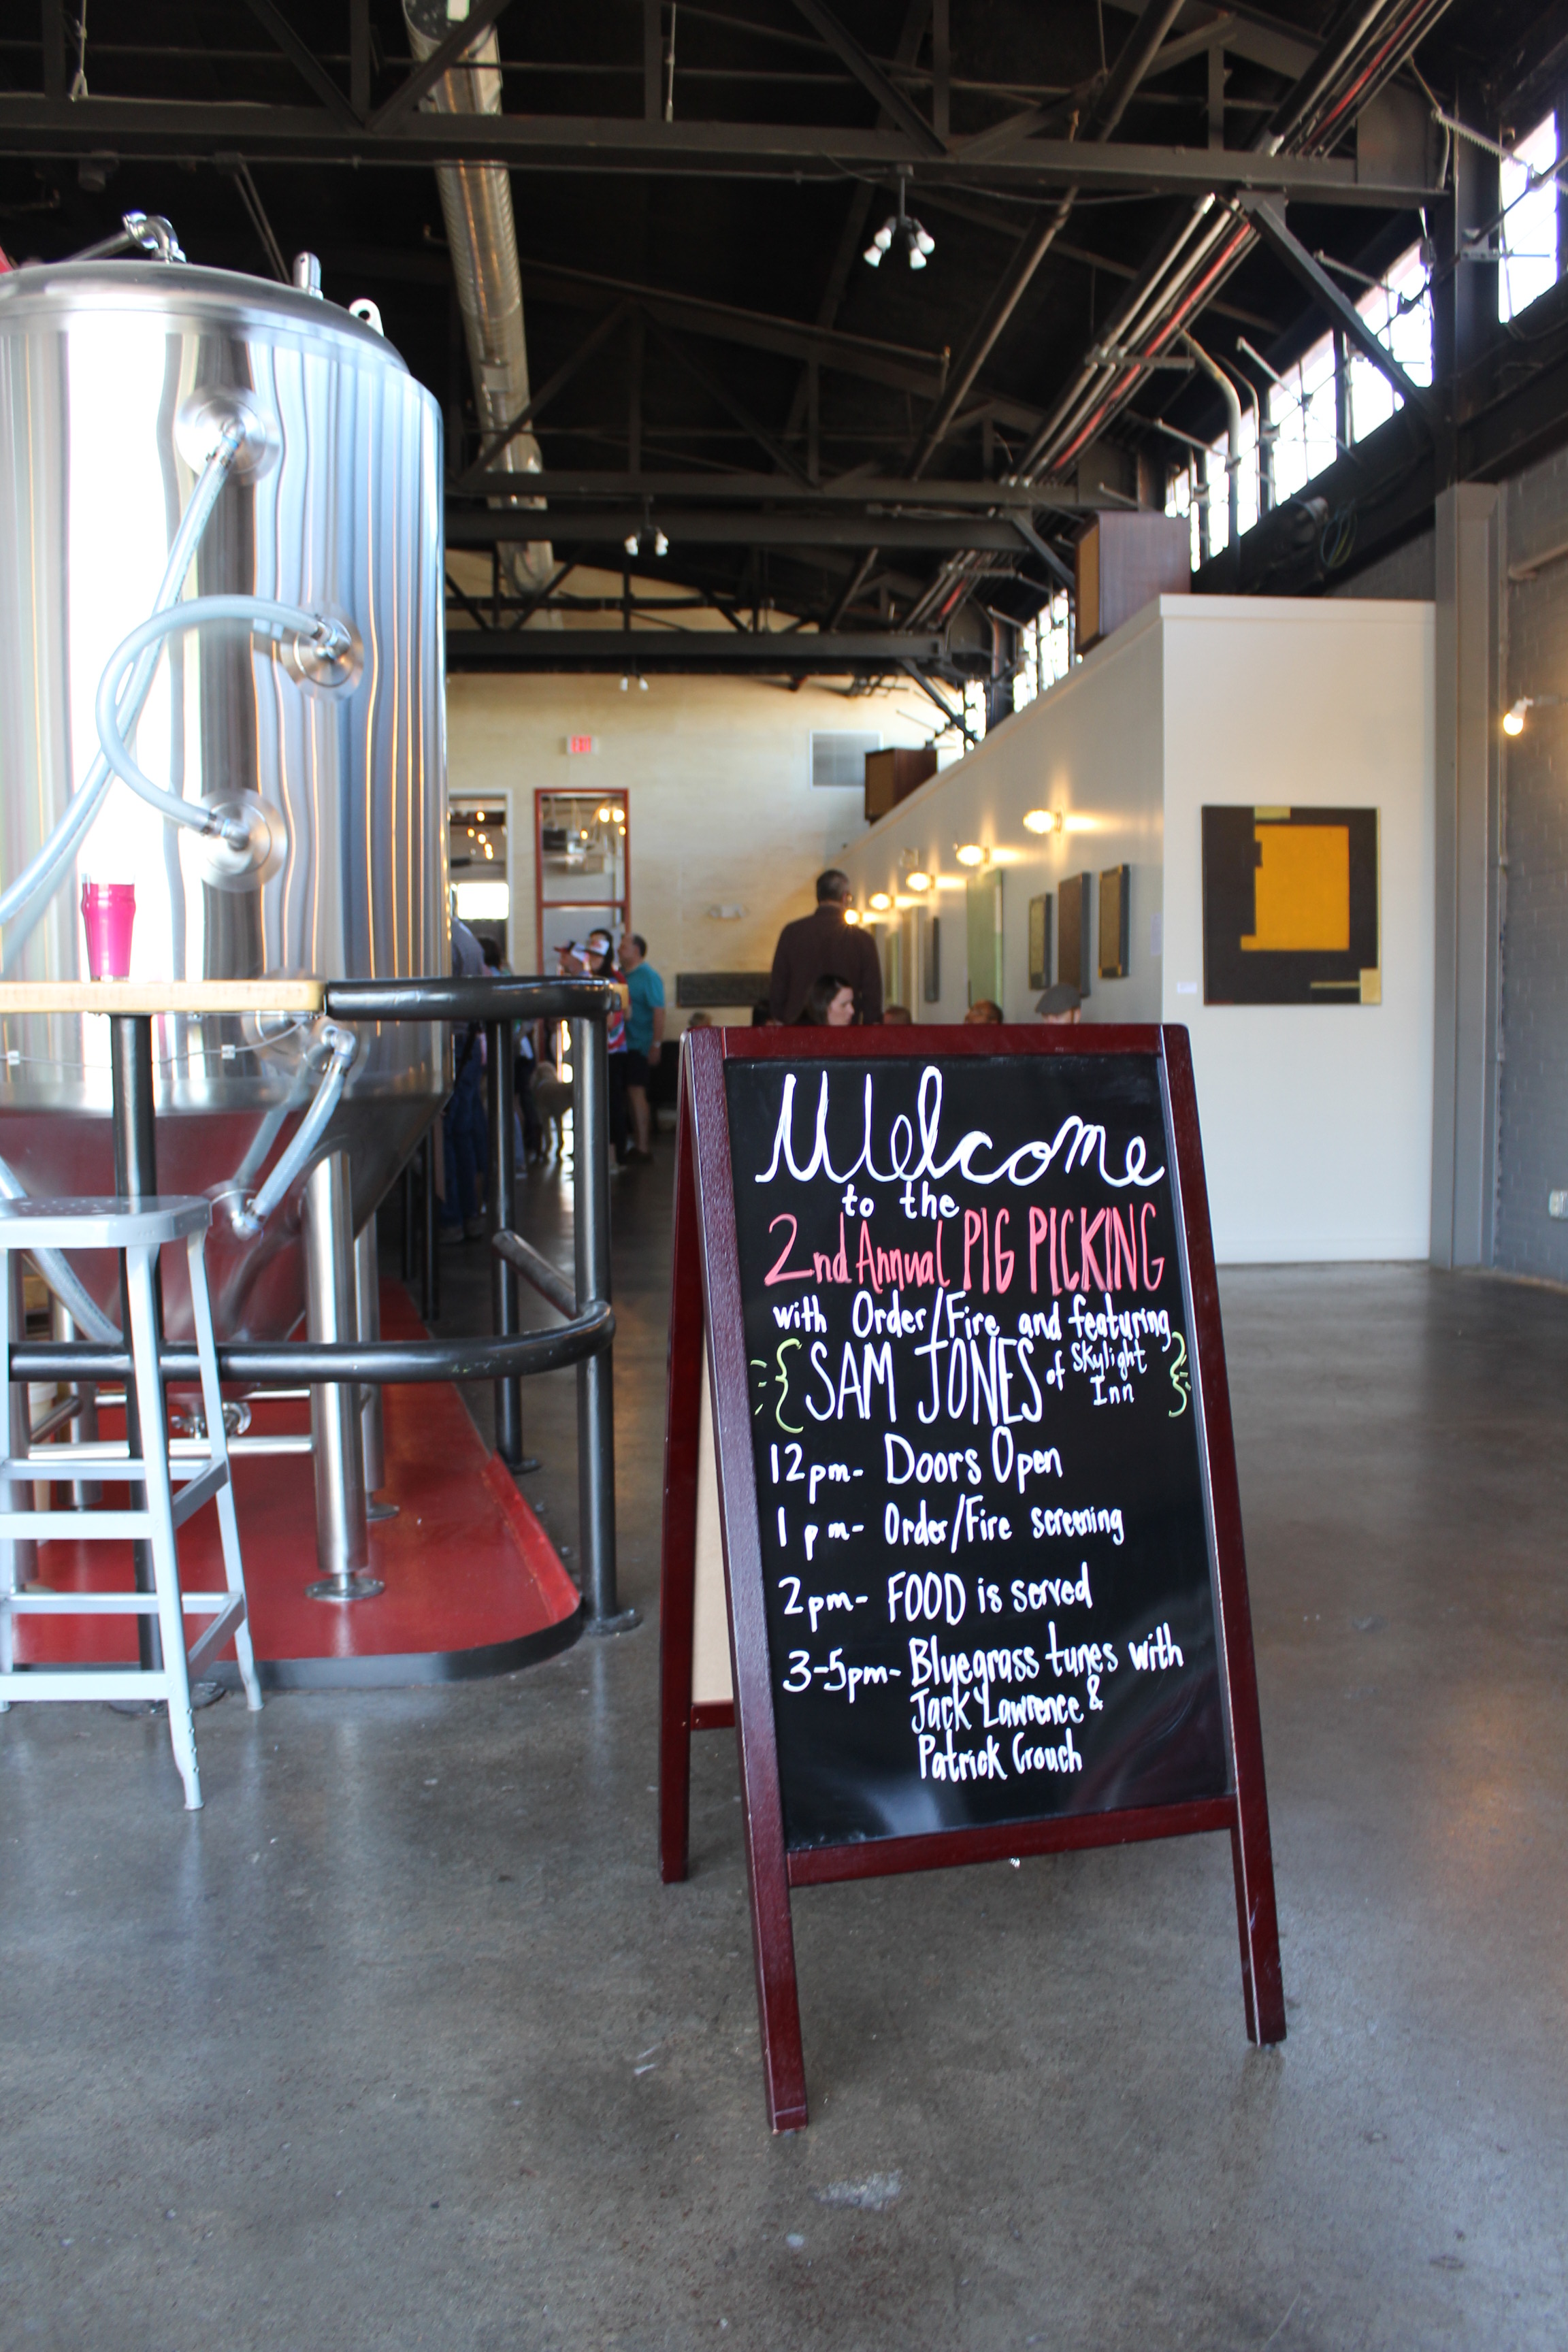 Welcome
to the
2nd Annual PIG PICKING
with Order/Fire and featuring
{SAM JONES of Skylight
Inn}
12pm- Doors Open
1pm- Order/Fire screening
2pm- FOOD is served
3-5pm- Bluegrass tunes with
Jack Lawrence &
Patrick Crouch